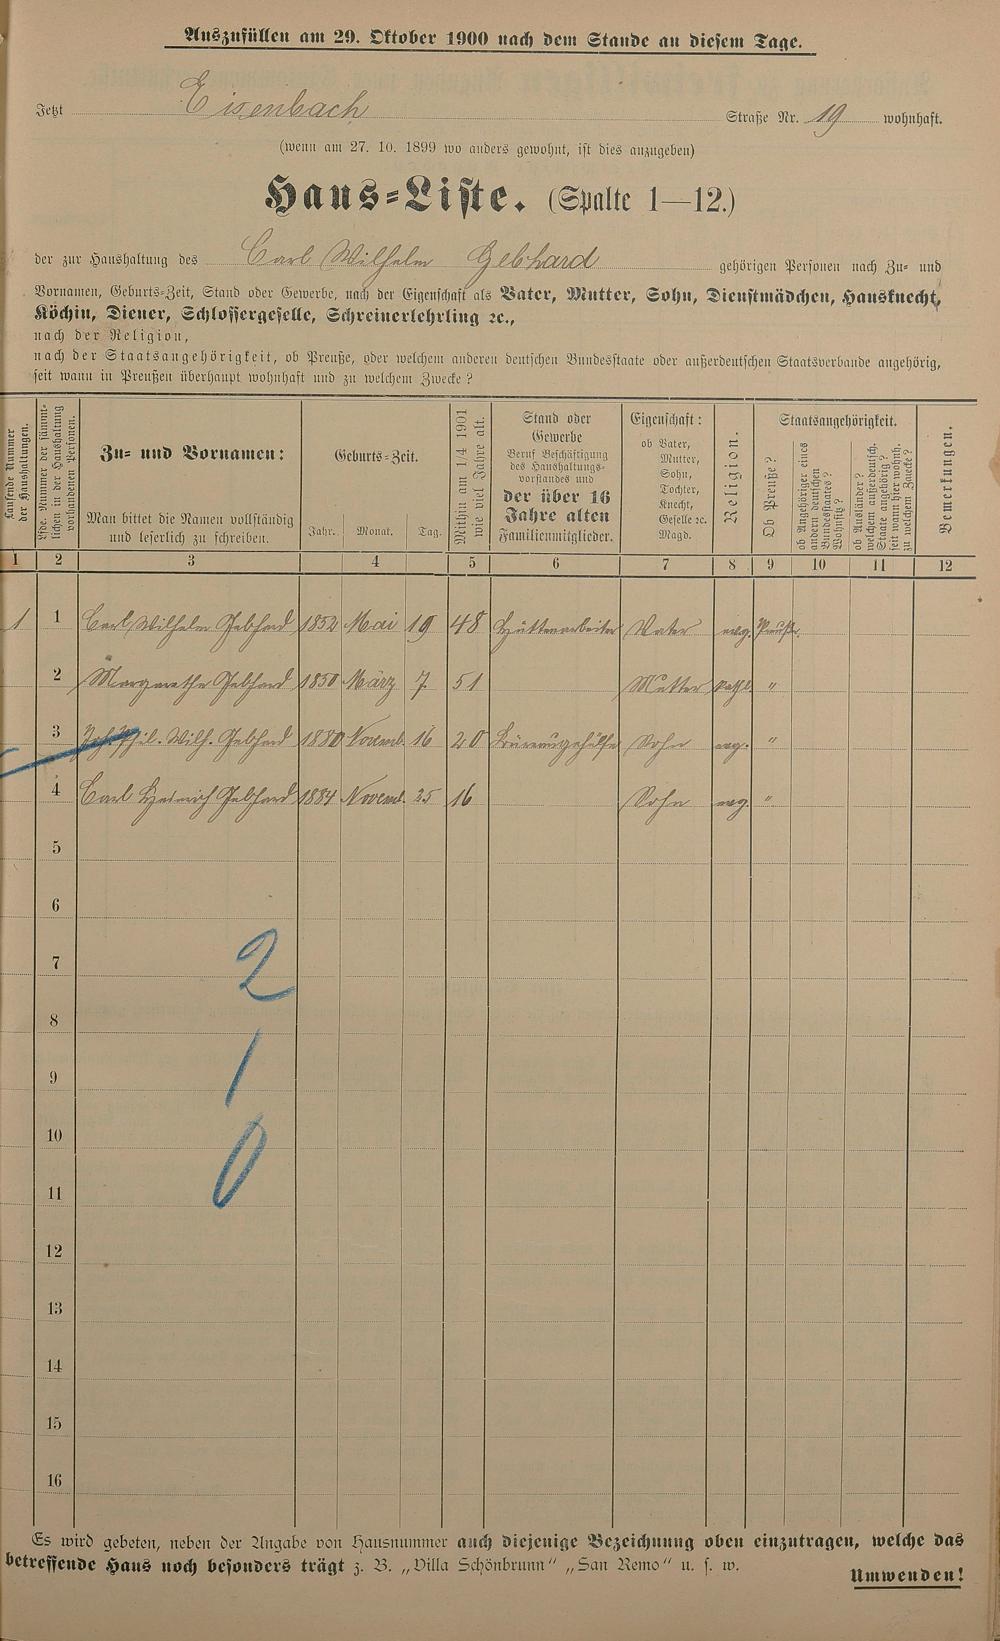 Auszufüllen am 29. Oktober 1900 nach dem Stande an diesem Tage.
Jetzt Eisenbach Straße Nr. 19 wohnhaft.
(wenn am 27. 10. 1899 wo anders gewohnt, ist dies anzugeben)
Haus=Liste. (Spalte 1—12.)
der zur Haushaltung des Carl Wilhelm Gebhard gehörigen Personen nach Zu= und
Vornamen, Geburts=Zeit, Stand oder Gewerbe, nach der Eigenschaft als Vater, Mutter, Sohn, Dienstmädchen, Hausknecht,
Köchin, Diener, Schlossergeselle, Schreinerlehrling ꝛc.,
nach der Religion,
nach der Staatsangehörigkeit, ob Preuße, oder welchem anderen deutschen Bundesstaate oder außerdeutschen Staatsverbande angehörig,
seit wann in Preußen überhaupt wohnhaft und zu welchem Zwecke?
Laufende Nummer
der Haushaltungen.
Lfde. Nummer der sämmt=
lichen in der Haushaltung
vorhandenen Personen.
Zu= und Vornamen:
Man bittet die Namen vollständig
und leserlich zu schreiben.
Geburts=Zeit.
Jahr. Monat. Tag.
Mithin am 1/4 1901
wie viel Jahre alt.
Stand oder
Gewerbe
Beruf Beschäftigung
des Haushaltungs=
vorstandes und
der über 16
Jahre alten
Familienmitglieder.
Eigenschaft:
ob Vater,
Mutter,
Sohn,
Tochter,
Knecht,
Geselle ꝛc.
Magd.
Religion.
Staatsangehörigkeit.
Ob Preuße?
ob Angehöriger eines
andern deutschen
Bundesstaates?
Wohnsitz?
ob Ausländer?
welchem außerdeutsch.
Staate angehörig?
seit wann hier wohnh.
zu welchem Zwecke?
Bemerkungen.
1 2 3 4 5 6 7 8 9 10 11 12
1 1 Carl Wilhelm Gebhard 1852 Mai 19 48 Hüttenarbeiter Vater evg. Preuße
2 Margarethe Gebhard 1850 März 7. 51 Mutter kathl. "
3 Joh. Phil. Wilh. Gebhard 1880 Novemb. 16 20 Büreaugehülfe Sohn evg. "
4 Carl Heinrich Gebhard 1884 Novemb. 25 16 Sohn evg. "
5
6
7
2
8
9
1
10
11
0
12
13
14
15
16
Es wird gebeten, neben der Angabe von Hausnummer auch diejenige Bezeichnung oben einzutragen, welche das
betreffende Haus noch besonders trägt z. B. „Villa Schönbrunn" „San Remo" u. s. w.
Umwenden!